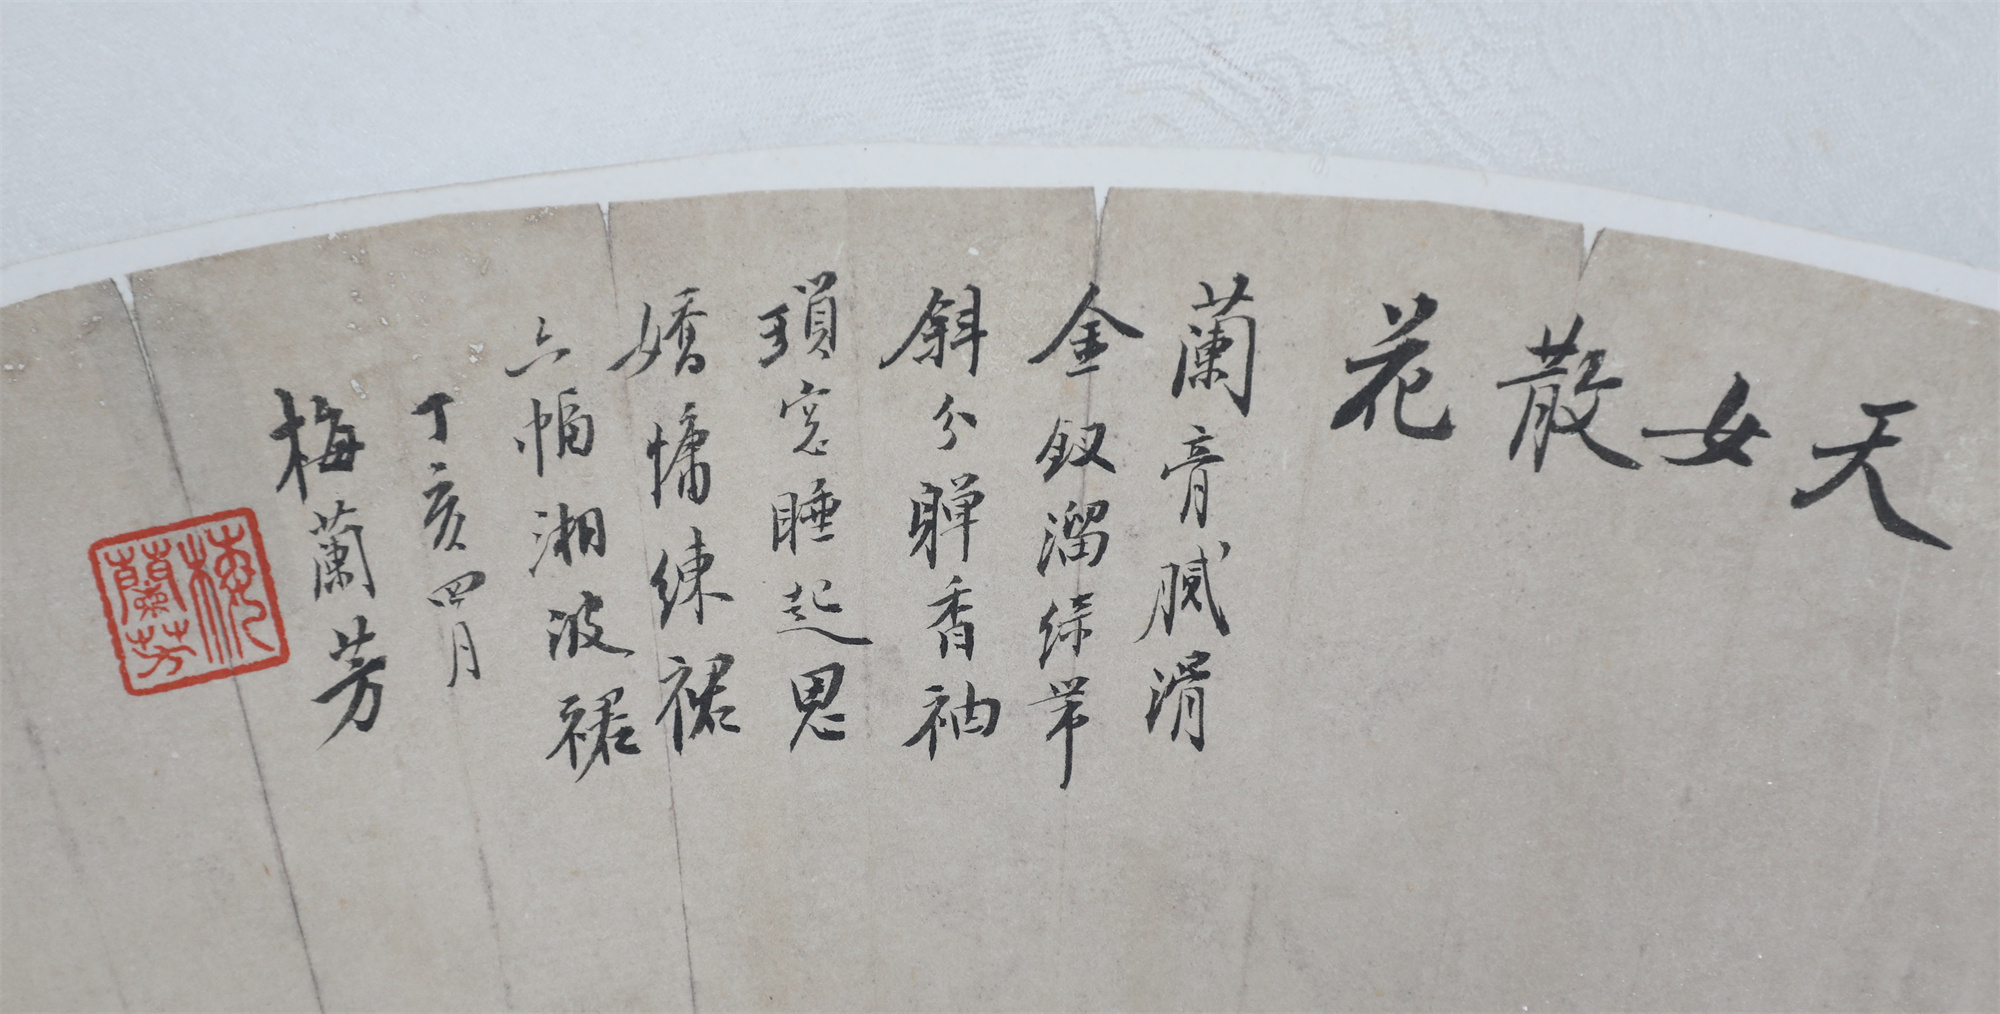 天女散花
蘭膏膩滑
金釵溜
斜分軃香袖
瑣窓睡起思
嬌慵練裙
六幅湘波裙
丁亥四月
梅蘭芳
梅蘭芳